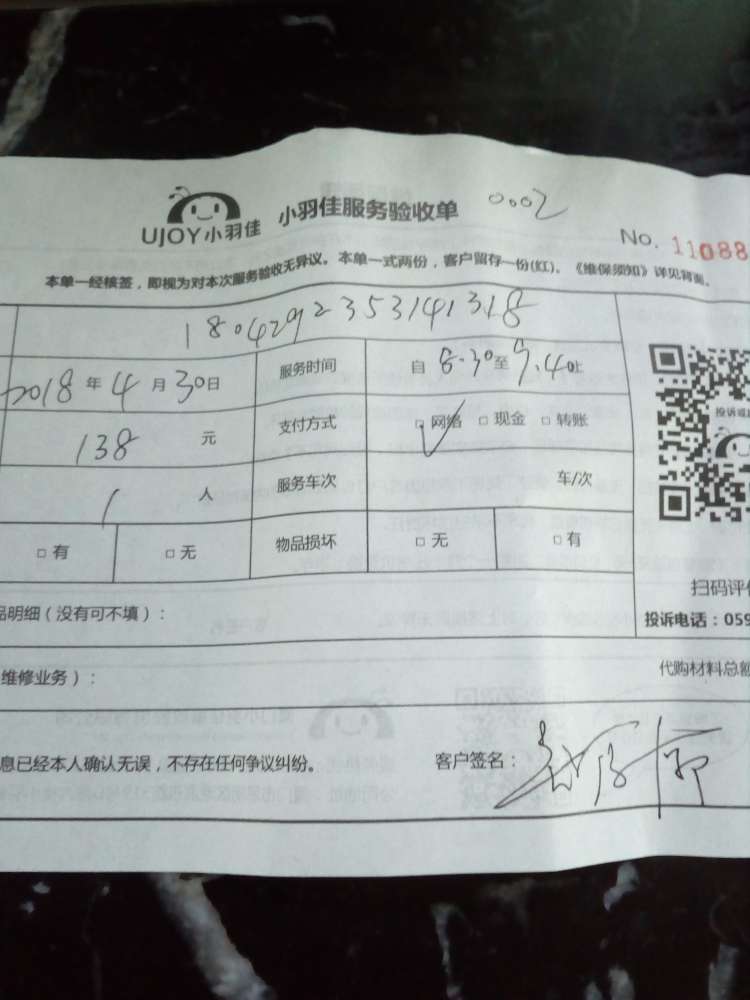 UJOY小羽佳 小羽佳服务验收单 0002
No. 11088
本单一经核签，即视为对本次服务验收无异议。本单一式两份，客户留存一份(红)。《维保须知》详见背面。
2018 年 4 月 30日 服务时间 自 8.30至 9.40止
投诉或
138 元 支付方式 □ 网络 □ 现金 □ 转账
1 人 服务车次 车/次
□ 有 □ 无 物品损坏 □ 无 □ 有
扫码评
品明细（没有可不填）：
投诉电话：059
维修业务）：
代购材料总额
息已经本人确认无误，不存在任何争议纠纷。 客户签名：